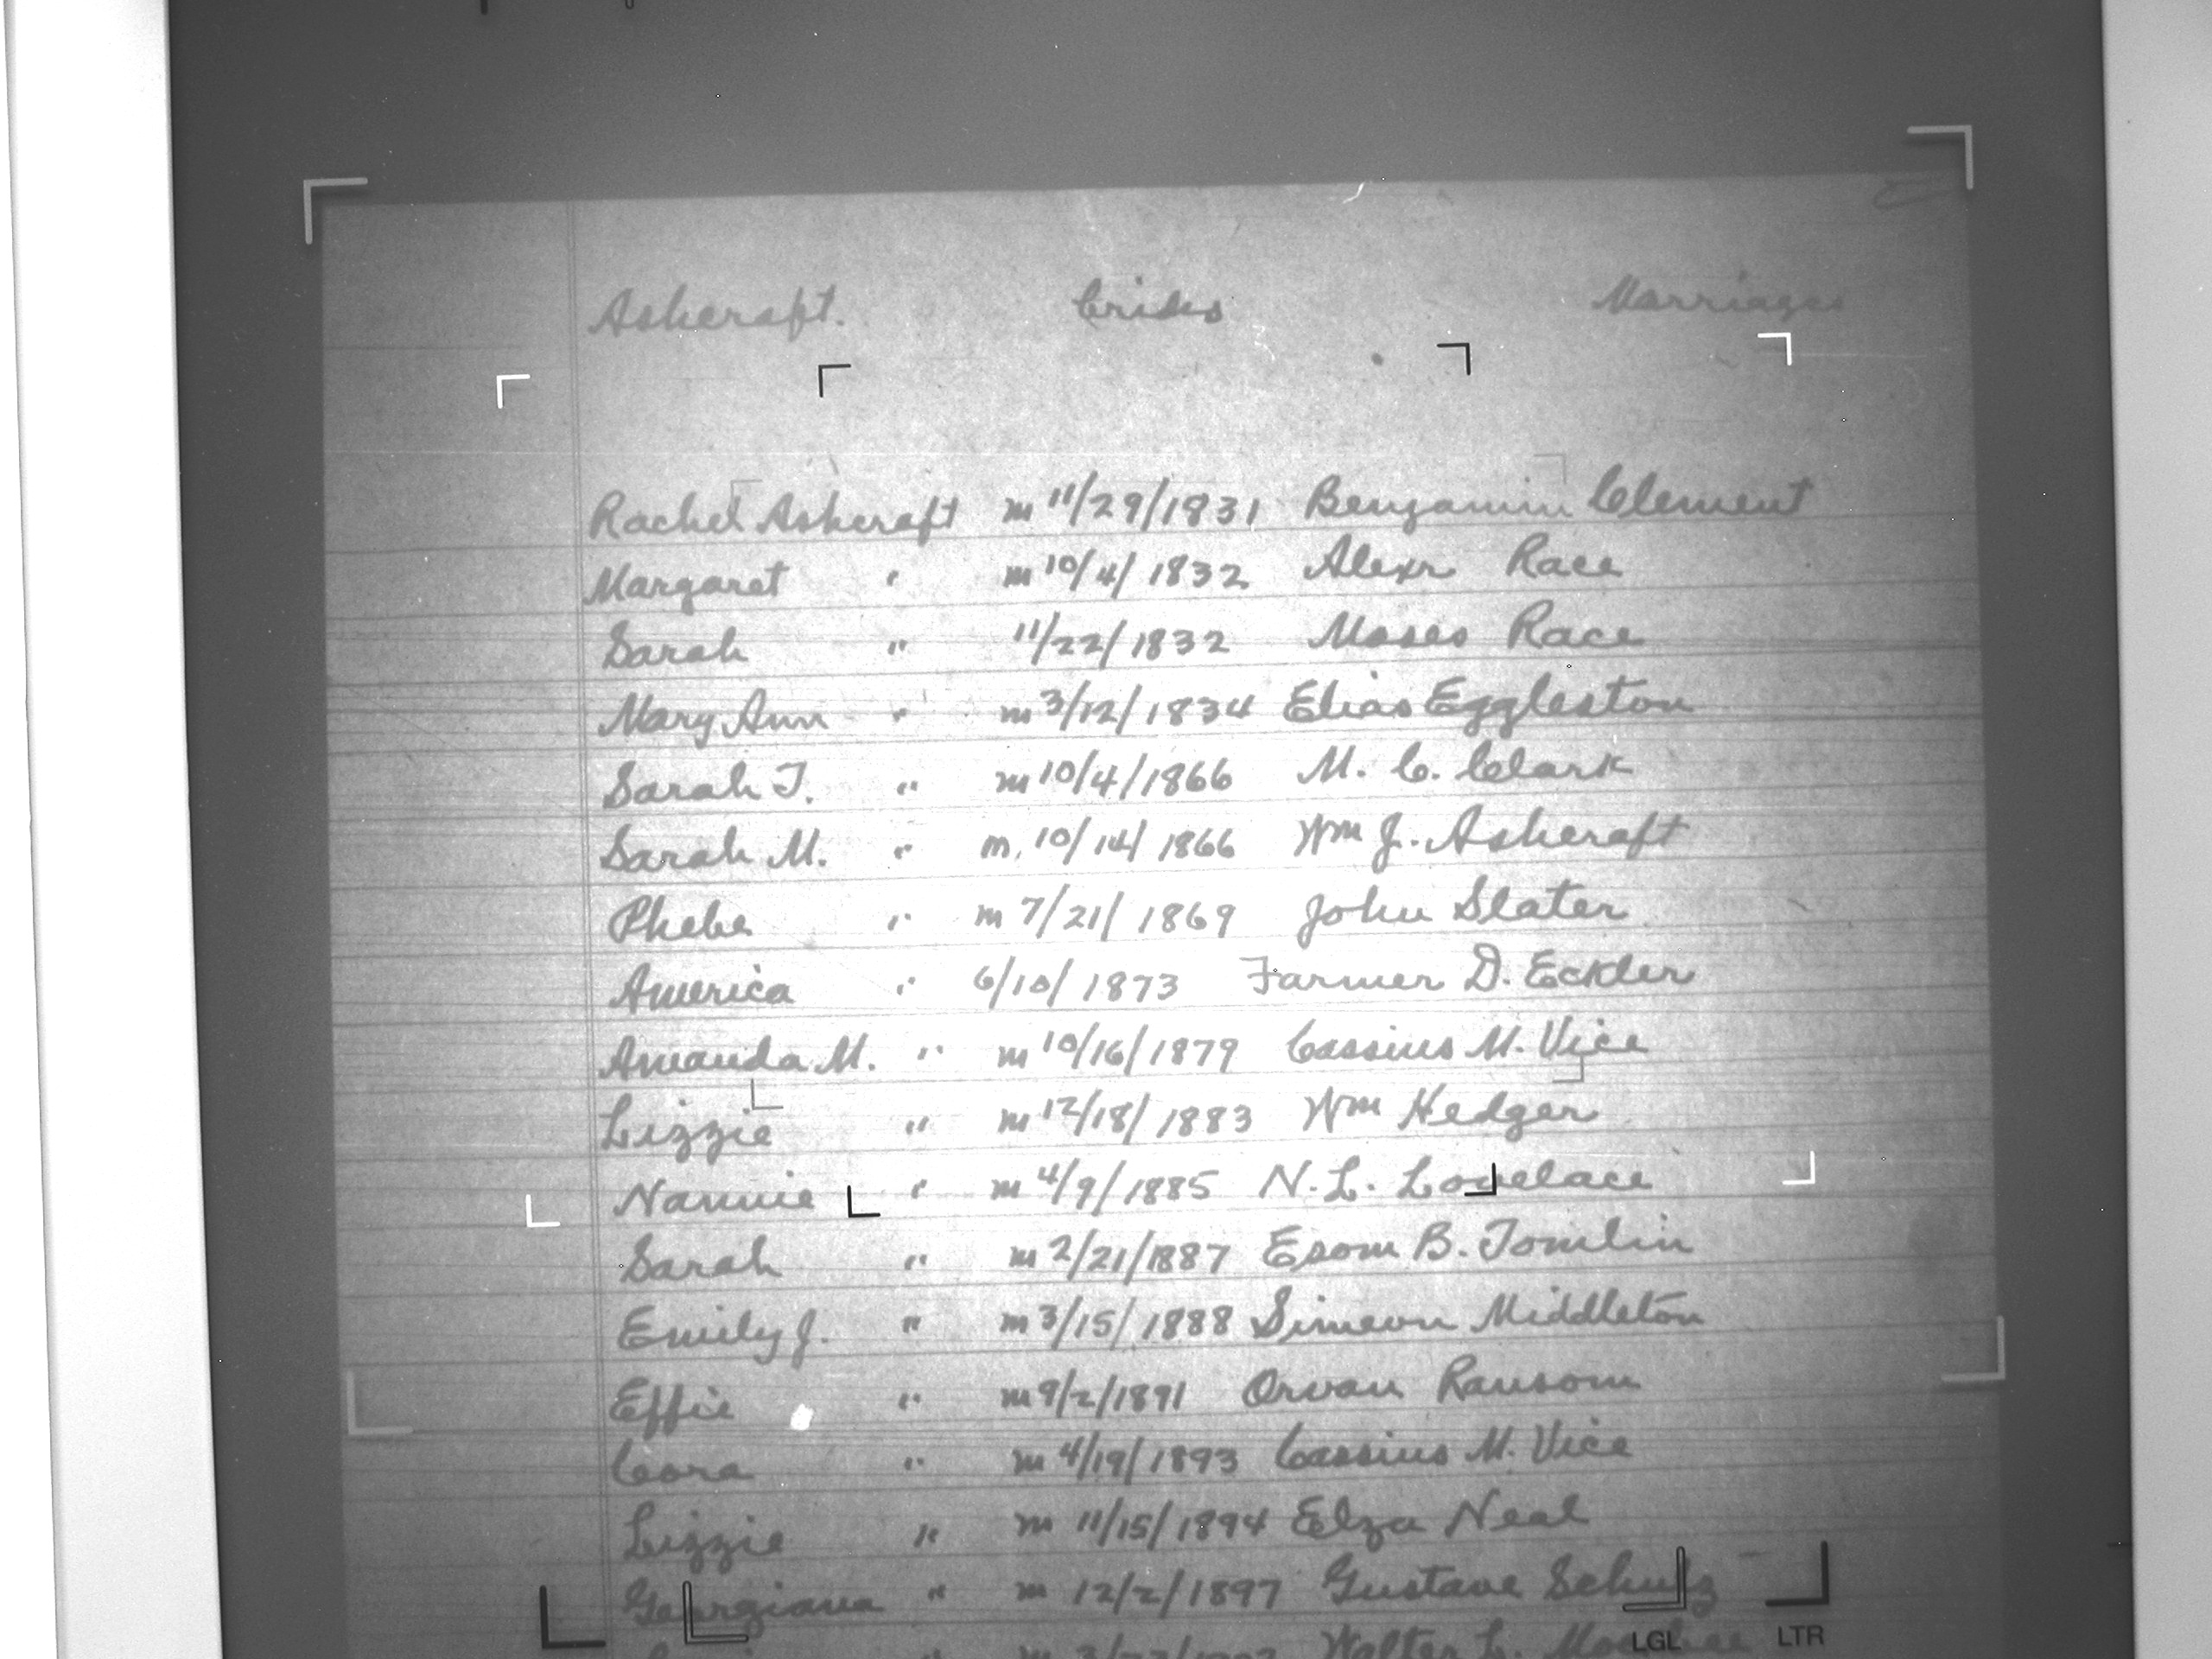 Ashcraft. Brides Marriages
Rachel Ashcraft m 11/29/1831 Benjamin Clement
Margaret " m 10/4/1832 Alexr Race
Sarah " 11/22/1832 Moses Race
Mary Ann " m 3/12/1834 Elias Eggleston
Sarah T. " m 10/4/1866 M. C. Clark
Sarah M. " m. 10/14/1866 Wm J. Ashcraft
Phebe " m 7/21/1869 John Slater
America " 6/10/1873 Farmer D. Eckler
Amanda M. " m 10/16/1879 Cassius M. Vice
Lizzie " m 12/18/1883 Wm Hedger
Nannie " m 4/9/1885 N. L. Lovelace
Sarah " m 2/21/1887 Esom B. Tomlin
Emily J. " m 3/15/1888 Simeon Middleton
Effie " m 9/2/1891 Orvan Ransom
Cora " m 4/19/1893 Cassius M. Vice
Lizzie " m 11/15/1894 Elza Neal
Georgiana " m 12/2/1897 Gustave Schulz
" m Walter L.
LGL LTR